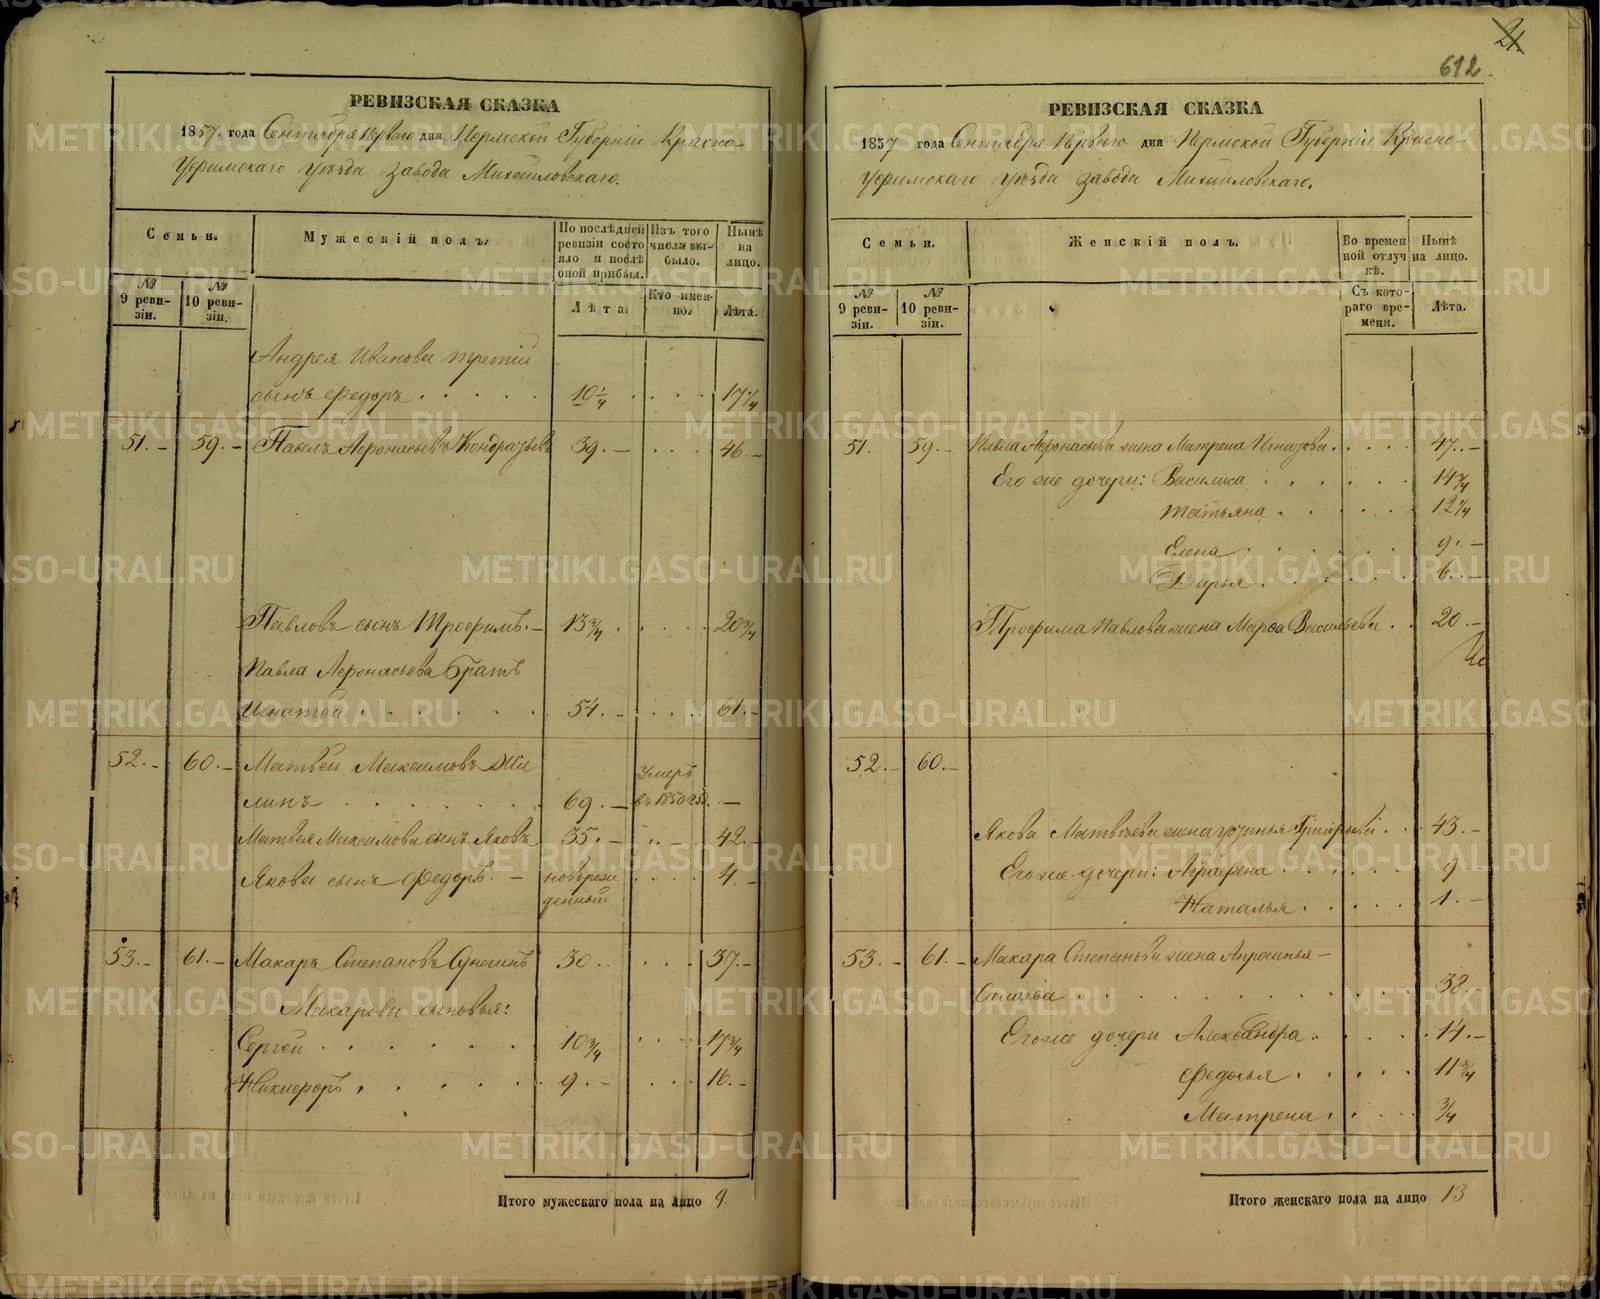 РЕВИЗСКАЯ СКАЗКА
1857 года Сентября перваго дня Пермской Губерніи Красно-
уфимскаго уѣзда завода Михайловскаго.
Семьи. Мужескій полъ. По послѣдней ревизіи состояло и послѣ оной прибыл. Изъ того числа выбыло. Нынѣ на лицо.
№ 9 ревизіи. № 10 ревизіи. Лѣта. Кто именно. Лѣта.
Андрея Иванова третій
сынъ Федоръ . . . . . 10¼ . . . . 17¼
51. – 59. – Павелъ Афонасьевъ Кондратьевъ 39. – . . . 46. –
Павловъ сынъ Трофимъ. – 13¾ . . . . . 20¾
Павла Афонасьева братъ
Игнатей . . . . . . 54. – . . . . 61. –
52. – 60. – Матвей Максимовъ Жи
линъ . . . . . . . 69. – умеръ въ 1850 г. –
Матвея Максимова сынъ Яковъ 35. – . . – 42. –
Якова сынъ Федоръ – новорожденный . . . . 4. –
53. – 61. – Макаръ Степановъ 30. . . . . 37. –
Макаровы сыновья:
Сергей . . . . . . 10¾ . . . . 17¾
Никифоръ . . . . . 9. – . . . 16. –
Итого мужескаго пола на лицо 9.
21.
612
РЕВИЗСКАЯ СКАЗКА
1857 года Сентября перваго дня Пермской Губерніи Красно-
уфимскаго уѣзда завода Михайловскаго.
Семьи. Женскій полъ. Во временной отлучкѣ. Нынѣ на лицо.
№ 9 ревизіи. № 10 ревизіи. Съ котораго времени. Лѣта.
51. 59. – Павла Афонасьева жена Матрена Игнатова . . . . . 47. –
Его же дочери: Василиса . . . . . . 14¾
Татьяна . . . . . . 12¼
Елена . . . . . . 9. –
Дарья . . . . . . 6. –
Трофима Павлова жена Марфа Васильева . . 20. –
52. – 60. –
Якова Матвѣева жена Устинья Григорьева . . . 43. –
Его же дочери: Аграфена . . . . . . 9
Наталья . . . . . 1. –
53. – 61. – Макара Степанова жена Апросинья –
. . . . . . . . . 38. –
Его же дочери Александра . . . . . 14. –
Федосья . . . . . 11¾
Матрена . . . . ¾
Итого женскаго пола на лицо 13
METRIKI.GASO-URAL.RU